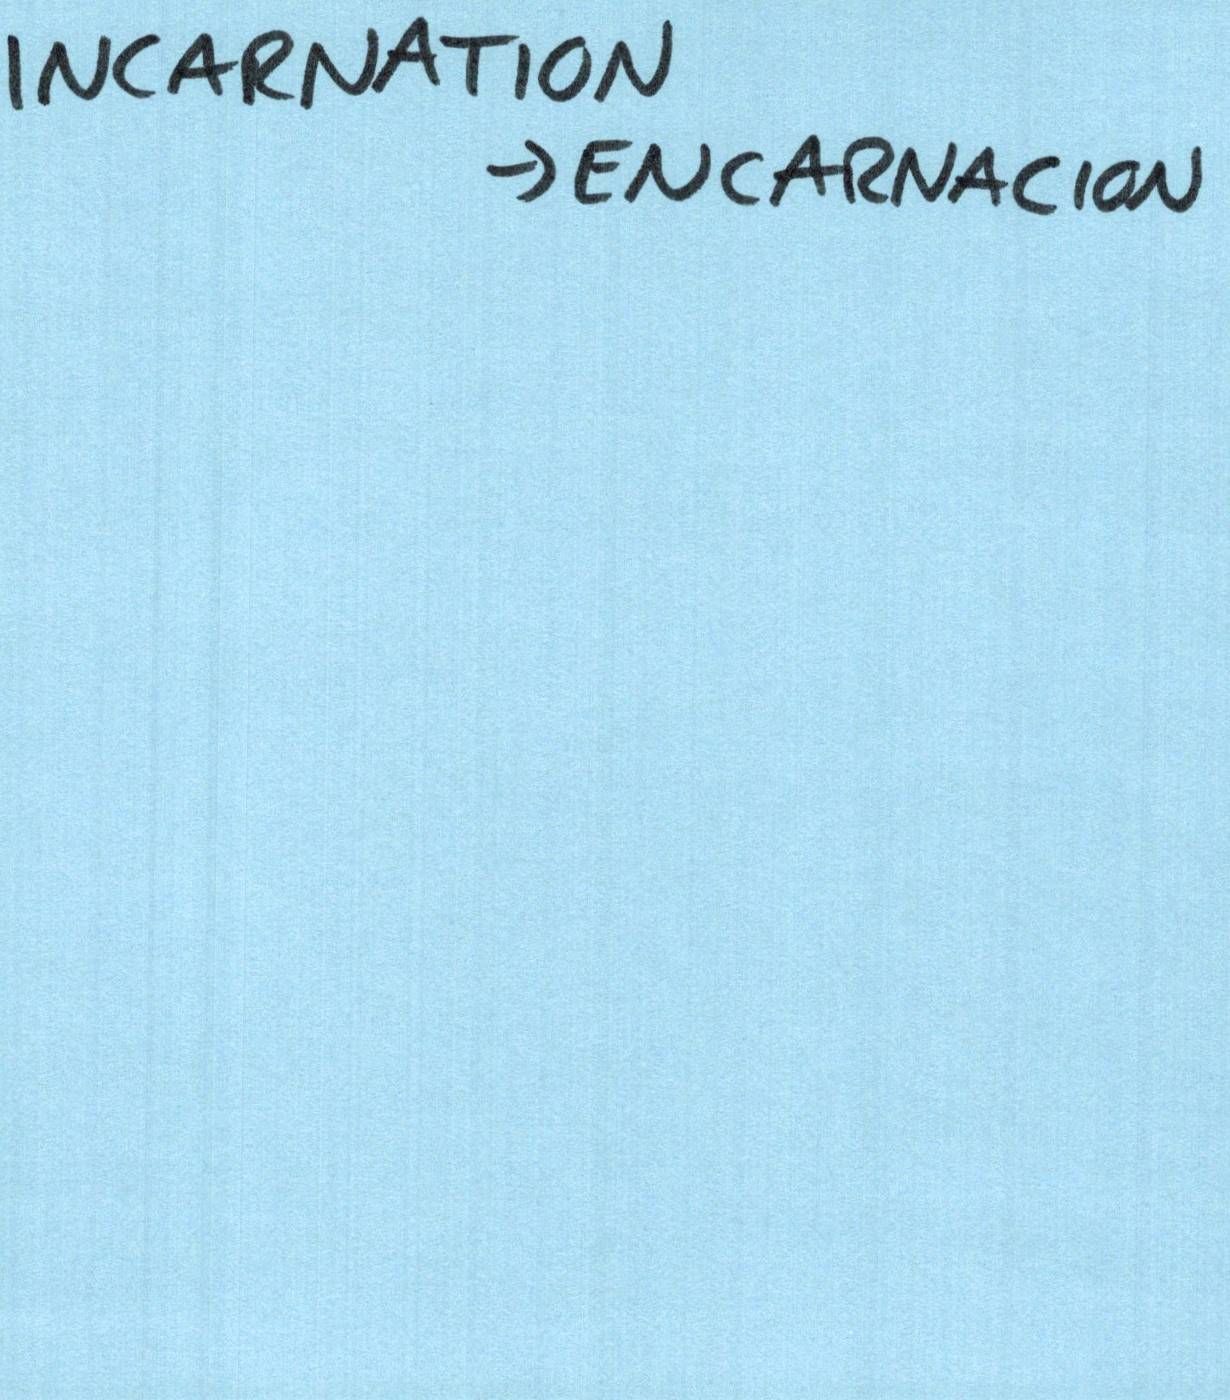 INCARNATION
→ENCARNACION